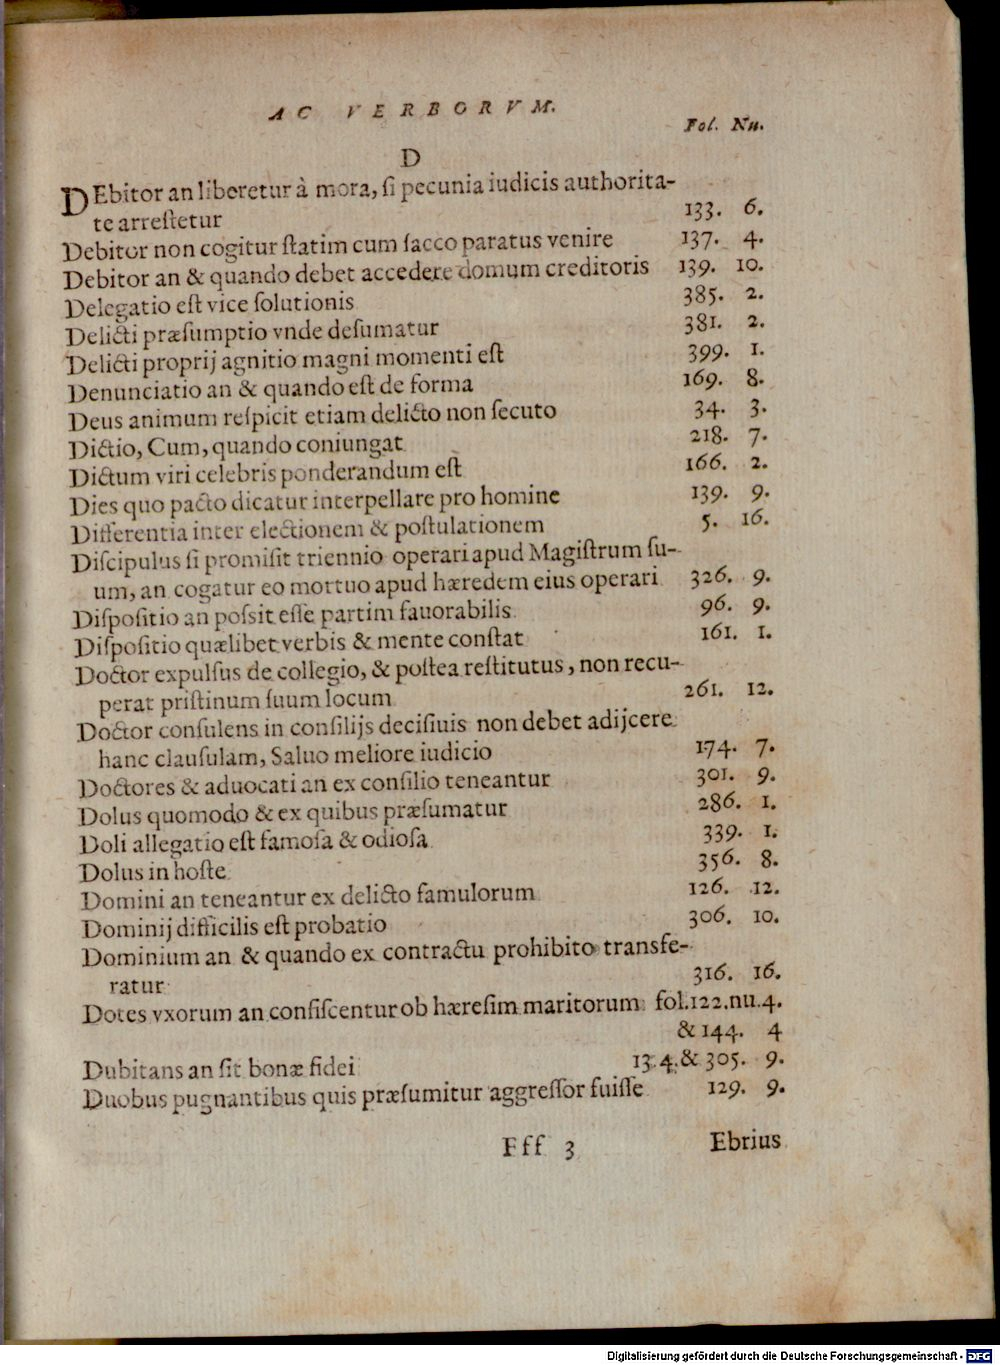 AC VERBORVM.
Fol. Nu.
D
DEbitor an liberetur à mora, ſi pecunia iudicis authorita-
te arreſtetur 133. 6.
Debitor non cogitur ſtatim cum ſacco paratus venire 137. 4.
Debitor an & quando debet accedere domum creditoris 139. 10.
Delegatio eſt vice ſolutionis 385. 2.
Delicti præſumptio vnde deſumatur 381. 2.
Delicti proprij agnitio magni momenti eſt 399. 1.
Denunciatio an & quando eſt de forma 169. 8.
Deus animum reſpicit etiam delicto non ſecuto 34. 3.
Dictio, Cum, quando coniungat 218. 7.
Dictum viri celebris ponderandum eſt 166. 2.
Dies quo pacto dicatur interpellare pro homine 139. 9.
Differentia inter electionem & poſtulationem 5. 16.
Diſcipulus ſi promiſit triennio operari apud Magiſtrum ſu-
um, an cogatur eo mortuo apud hæredem eius operari 326. 9.
Diſpoſitio an poſsit eſſe partim fauorabilis 96. 9.
Diſpoſitio quælibet verbis & mente conſtat 161. 1.
Doctor expulſus de collegio, & poſtea reſtitutus, non recu-
perat priſtinum ſuum locum 261. 12.
Doctor conſulens in conſilijs deciſiuis non debet adijcere
hanc clauſulam, Saluo meliore iudicio 174. 7.
Doctores & aduocati an ex conſilio teneantur 301. 9.
Dolus quomodo & ex quibus præſumatur 286. 1.
Doli allegatio eſt famoſa & odioſa 339. 1.
Dolus in hoſte 356. 8.
Domini an teneantur ex delicto famulorum 126. 12.
Dominij difficilis eſt probatio 306. 10.
Dominium an & quando ex contractu prohibito transfe-
ratur 316. 16.
Dotes vxorum an confiſcentur ob hæreſim maritorum fol.122.nu.4.
& 144. 4
Dubitans an ſit bonæ fidei 13.4.& 305. 9.
Duobus pugnantibus quis præſumitur aggreſſor fuiſſe 129. 9.
Fff 3 Ebrius
Digitalisierung gefördert durch die Deutsche Forschungsgemeinschaft - DFG